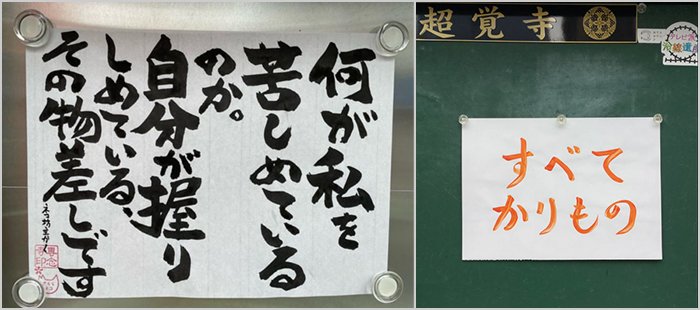 何が私を
苦しめている
のか。
自分が握り
しめている、
その物差しです
超覚寺
すべて
かりもの